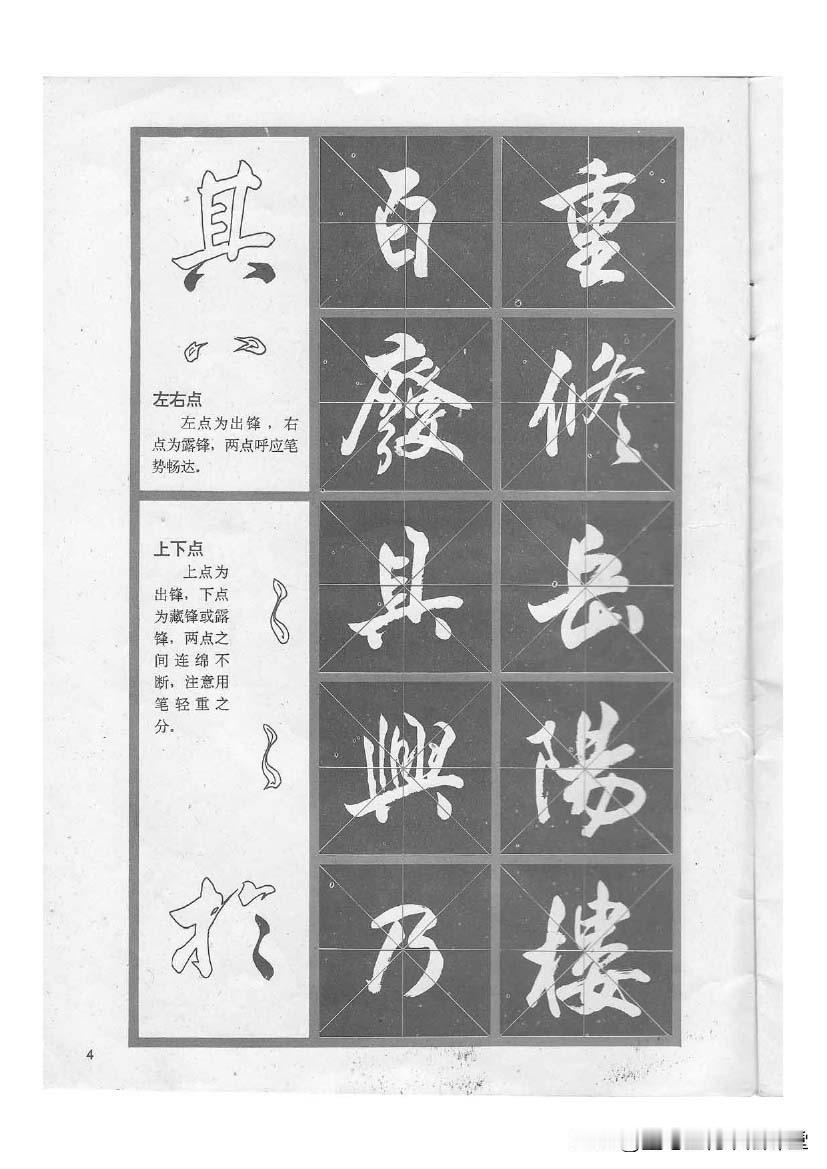 其
左右点
左点为出锋，右
点为露锋，两点呼应笔
势畅达。
上下点
上点为
出锋，下点
为藏锋或露
锋，两点之
间连绵不
断，注意用
笔轻重之
分。
於
百廢具興乃
重修岳陽樓
4